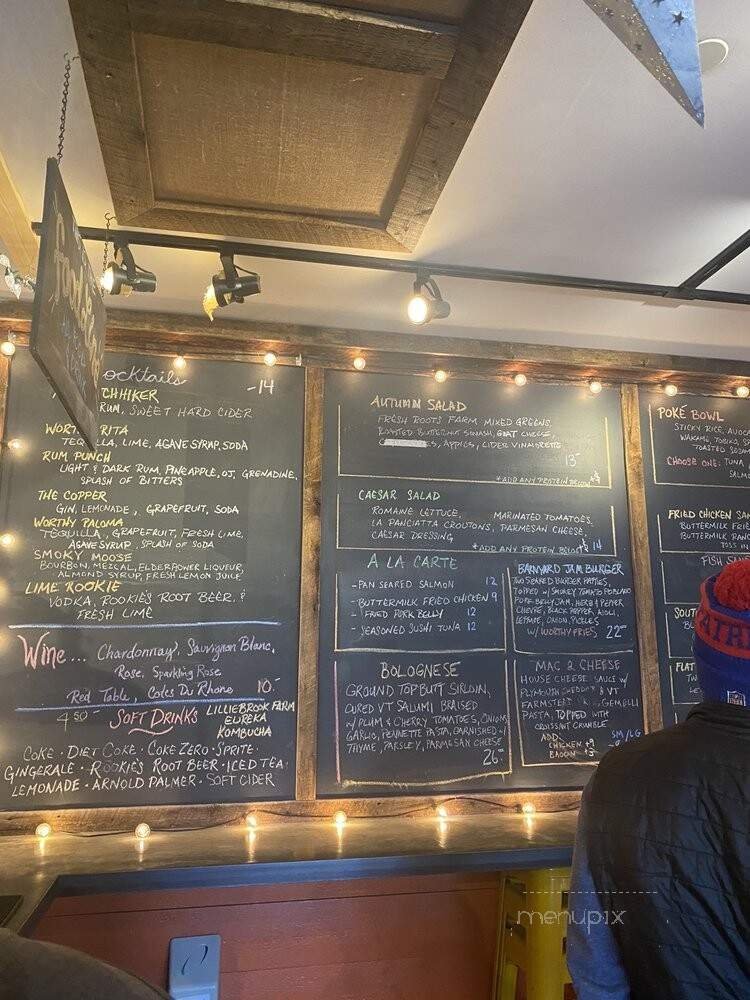 ocktails -14
CHHIKER
RUM, SWEET HARD CIDER
RITA
TEQUILLA, LIME, AGAVE SYRUP, SODA
RUM PUNCH
LIGHT & DARK RUM, PINEAPPLE, OJ, GRENADINE,
SPLASH OF BITTERS
THE COPPER
GIN, LEMONADE, GRAPEFRUIT, SODA
WORTHY PALOMA
TEQUILLA, GRAPEFRUIT, FRESH LIME,
AGAVE SYRUP, SPLASH OF SODA
SMOKY MOOSE
BOURBON, MEZCAL, ELDERFLOWER LIQUEUR,
ALMOND SYRUP, FRESH LEMON JUICE
LIME ROOKIE
VODKA, ROOKIE'S ROOT BEER, &
FRESH LIME
Wine... Chardonnay, Sauvignon Blanc,
Rose, Sparkling Rose
Red Table, Cotes Du Rhone 10-
4.50 SOFT DRINKS LILLIEBROOK FARM
EUREKA
KOMBUCHA
COKE · DIET COKE · COKE ZERO · SPRITE ·
GINGERALE · ROOKIE'S ROOT BEER · ICED TEA ·
LEMONADE · ARNOLD PALMER · SOFT CIDER
AUTUMN SALAD
FRESH ROOTS FARM MIXED GREENS,
ROASTED BUTTERNUT SQUASH, GOAT CHEESE,
APPLES, CIDER VINAIGRETTE
13
*ADD ANY PROTEIN BELOW
CAESAR SALAD
ROMAINE LETTUCE, MARINATED TOMATOES,
LA PANCIATTA CROUTONS, PARMESAN CHEESE,
CAESAR DRESSING
*ADD ANY PROTEIN BELOW 14
A LA CARTE
-PAN SEARED SALMON 12
-BUTTERMILK FRIED CHICKEN 9
-FRIED PORK BELLY 12
-SEASONED SUSHI TUNA 12
BARNYARD JAM BURGER
TWO SEARED BURGER PATTIES,
TOPPED W/ SMOKEY TOMATO POBLANO
PORK BELLY JAM, HERB & PEPPER
CHEVRE, BLACK PEPPER AIOLI,
LETTUCE, ONION, PICKLES
W/ WORTHY FRIES 22
BOLOGNESE
GROUND TOP BUTT SIRLOIN,
CURED VT SALUMI BRAISED
W/ PLUM & CHERRY TOMATOES, ONIONS,
GARLIC, PENNETTE PASTA, GARNISHED W/
THYME, PARSLEY, PARMESAN CHEESE
26-
MAC & CHEESE
HOUSE CHEESE SAUCE W/
PLYMOUTH CHEDDAR & VT
FARMSTEAD GEMELLI
PASTA, TOPPED WITH
CROISSANT CRUMBLE
ADD SM/LG
CHICKEN +9
BACON +3
POKÉ BOWL
STICKY RICE, AVOCA
WAKAME, TOBIKO, S
TOASTED SESAM
CHOOSE ONE: TUNA,
SALMO
FRIED CHICKEN SAN
BUTTERMILK FRIE
BUTTERMILK RANC
FISH SAN
SOUT
FLAT
menupix